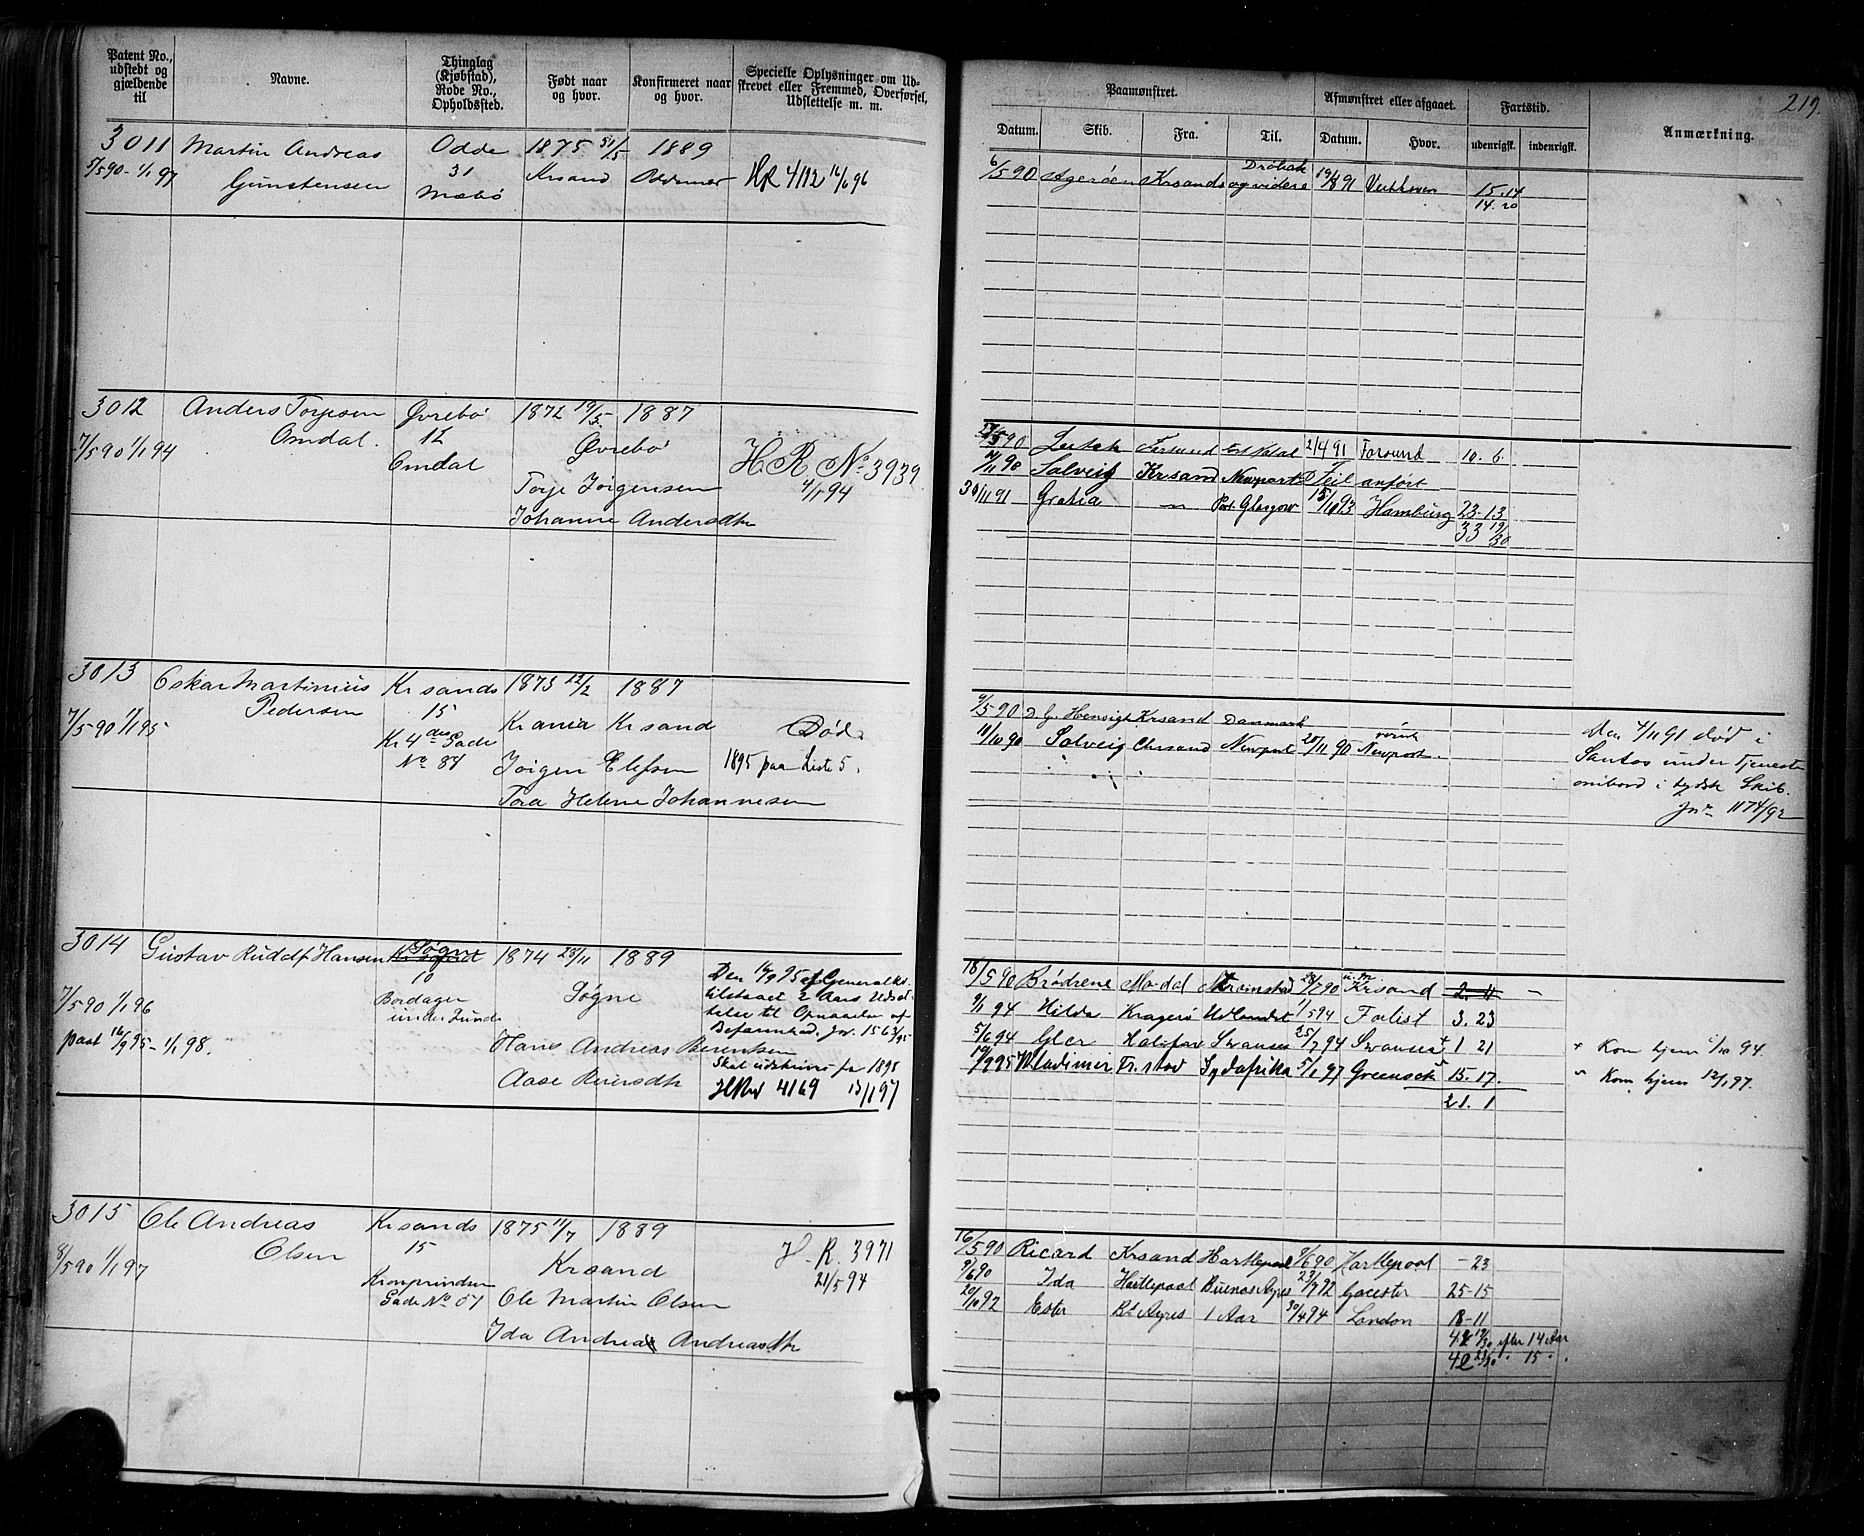 Patent No., udstedt og gjældende til
Navne.
Thinglag (Kjøbstad), Rode No., Opholdssted.
Født naar og hvor.
Konfirmeret naar og hvor.
Specielle Oplysninger om Udskrevet eller Fremmed, Overførsel, Udslettelse m. m.
3011 Martin Andreas Odde 1875 31/5 1889
5/5 90 - 1/1 97 Gunstensen 31 Krsand Oddernes HR 4112 16/6 96
Mæbø
3012 Anders Torjesen Øvrebø 1872 19/5 1887
7/5 90 1/1 94 Omdal. 12 Øvrebø HR No 3939
Omdal 4/1 94
Torje Jørgensen
Johanne Andersdtr
3013 Oskar Martinius Krsands 1873 22/2 1887
7/5 90 1/1 95 Pedersen 15 Krania Krsand Død.
Kr 4de Gade
No 84 Jørgen Elefsen 1895 paa Liste 5.
Tora Helene Johannesen
3014 Gustav Rudolf Hansen Søgne 1874 28/11 1889
10
7/5 90 1/1 96 Bordager Søgne
under Lunde
paat 16/9 95 - 1/1 98.
Den 14/9 95 af Generalks
tilstaaet 2 Aars Udsæt
telse til Opnaaelse af
Befarenhed. Jr. 1563/95
Hans Andreas Berentsen
Skal udskrives fra 1898
Aase Reiersdtr HR No 4169 13/1 97
3015 Ole Andreas Krsands 1875 11/7 1889
8/5 90 1/1 97 Olsen 15 Krsand H. R. 3971
21/5 94
Kronprindsen
Gade No 51 Ole Martin Olsen
Ida Andrea Andreasdtr
219.
Paamønstret.
Afmønstret eller afgaaet.
Fartstid.
Anmærkning.
Datum. Skib. Fra. Til. Datum. Hvor. udenrigsk. indenrigsk.
6/5 90 Agerøen Krsands Drøbak og videre 19/8 91 15.14
14.20
27/5 90 Farsund 2/4 91 Farsund 10. 6
7/11 90 Solveig Krsand Newport Feil anført
30/11 91 Gratia - " - Port Glasgow 15/10 93 Hamburg 23-13
33 19/30
9/5 90 D. G. Krsand Danmark
11/10 90 Solveig Chrsand Newport 25/11 90 Newport.
Den 4/11 91 død i
Santos under Tjeneste
ombord i tydsk Skib.
Jnr 1174/92
18/5 90 Brødrene Mandal Strømstad 28/7 90 Krsand 2. 11 -
9/1 94 Hilda Kragerø Udlandet 1/5 94 Forlist 3. 23
5/6 94 Gler Halifax Swansea 25/7 94 Swansea + 1 21
+ Kom hjem 2/10 94.
19/9 95 Wladimir Fr.stad Sydafrika 5/1 97 Greenock 15. 17.
" Kom hjem 12/1 97.
21. 1
16/5 90 Ricard Krsand Hartlepool 9/6 90 Hartlepool - 23
9/6 90 Ida Hartlepool Buenos Ayres 23/7 92 25-15
20/10 92 Ester Bs Ayres 1 Aar 30/4 94 London 18-11
42 19/30 efter 14 Aar
42 23/30 " 15 " .